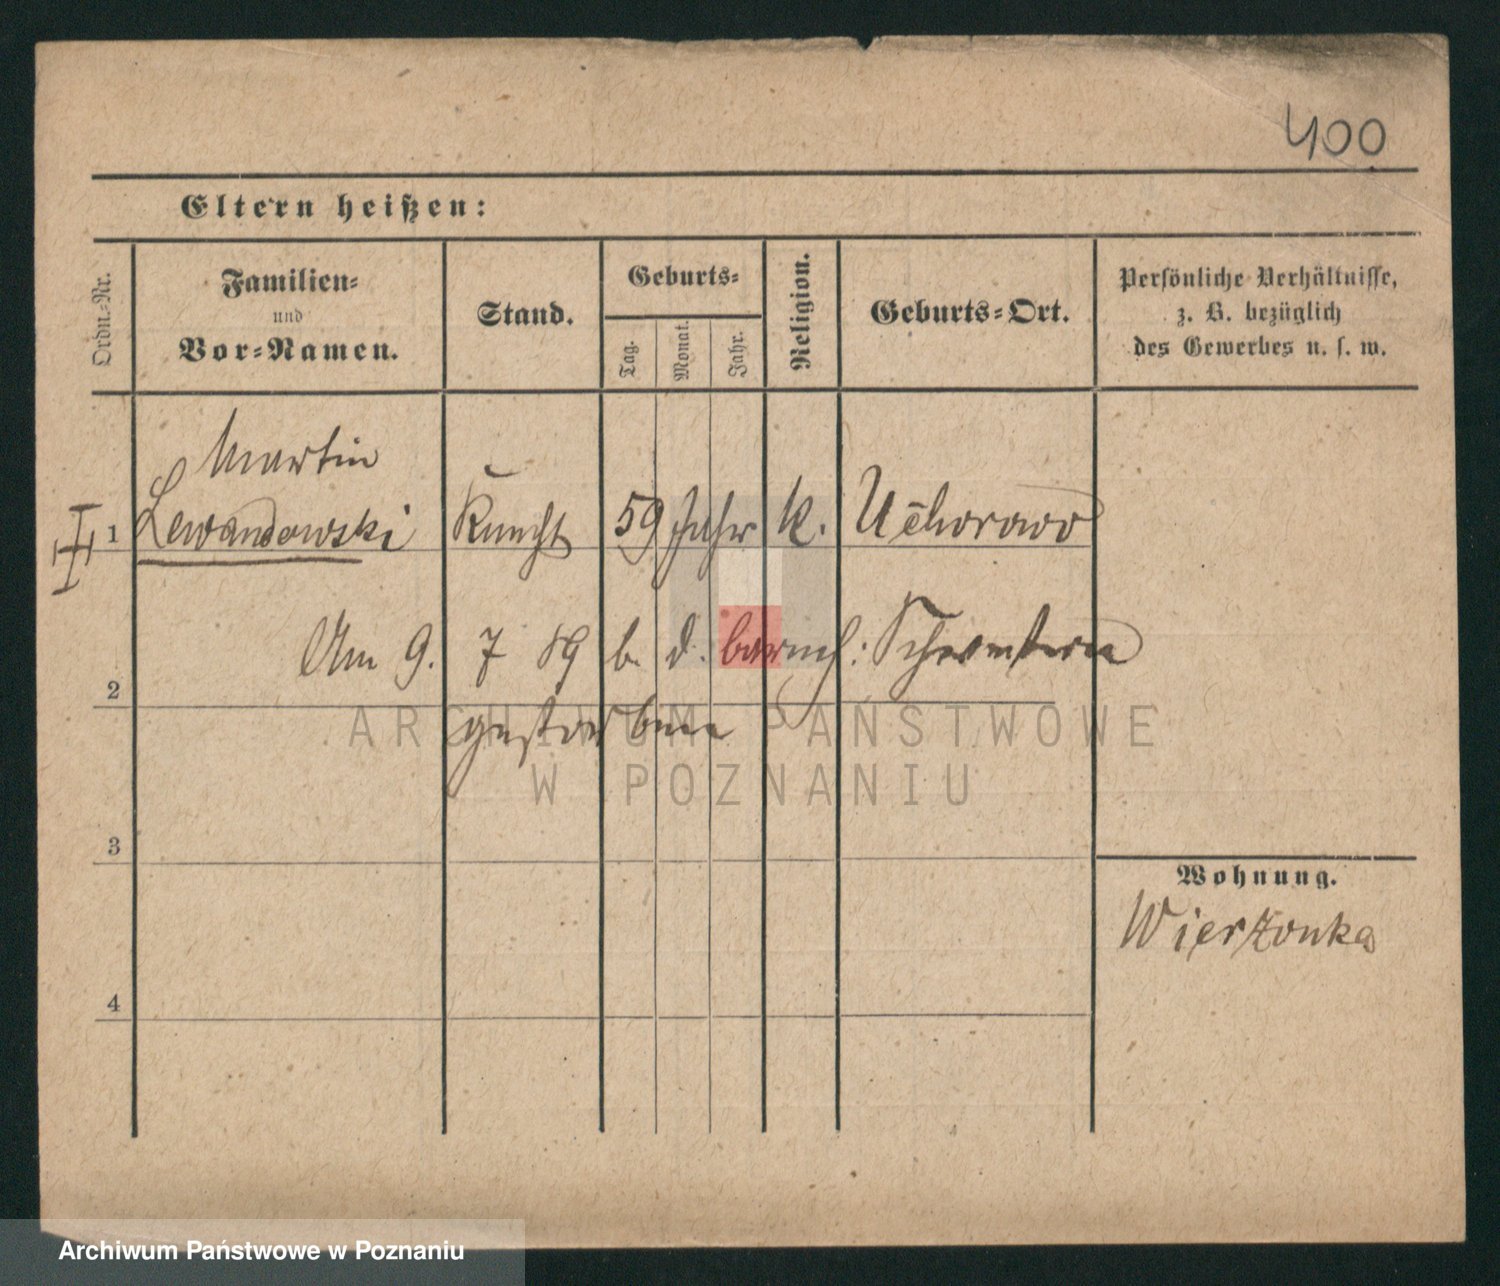 400
Eltern heißen:
Ordn.-Nr.
Familien-
und
Vor-Namen.
Stand.
Geburts-
Tag.
Monat.
Jahr.
Religion.
Geburts-Ort.
Persönliche Verhältnisse,
z. B. bezüglich
des Gewerbes u. s. w.
Martin
1 Lewandowski Knecht 59 Jahr k. Uchorowo
Am 9. 7 89 b. d. barmh: Schwestern
2
gestorben
ARCHIWUM PAŃSTWOWE
W POZNANIU
3
Wohnung.
Wierzonka
4
Archiwum Państwowe w Poznaniu